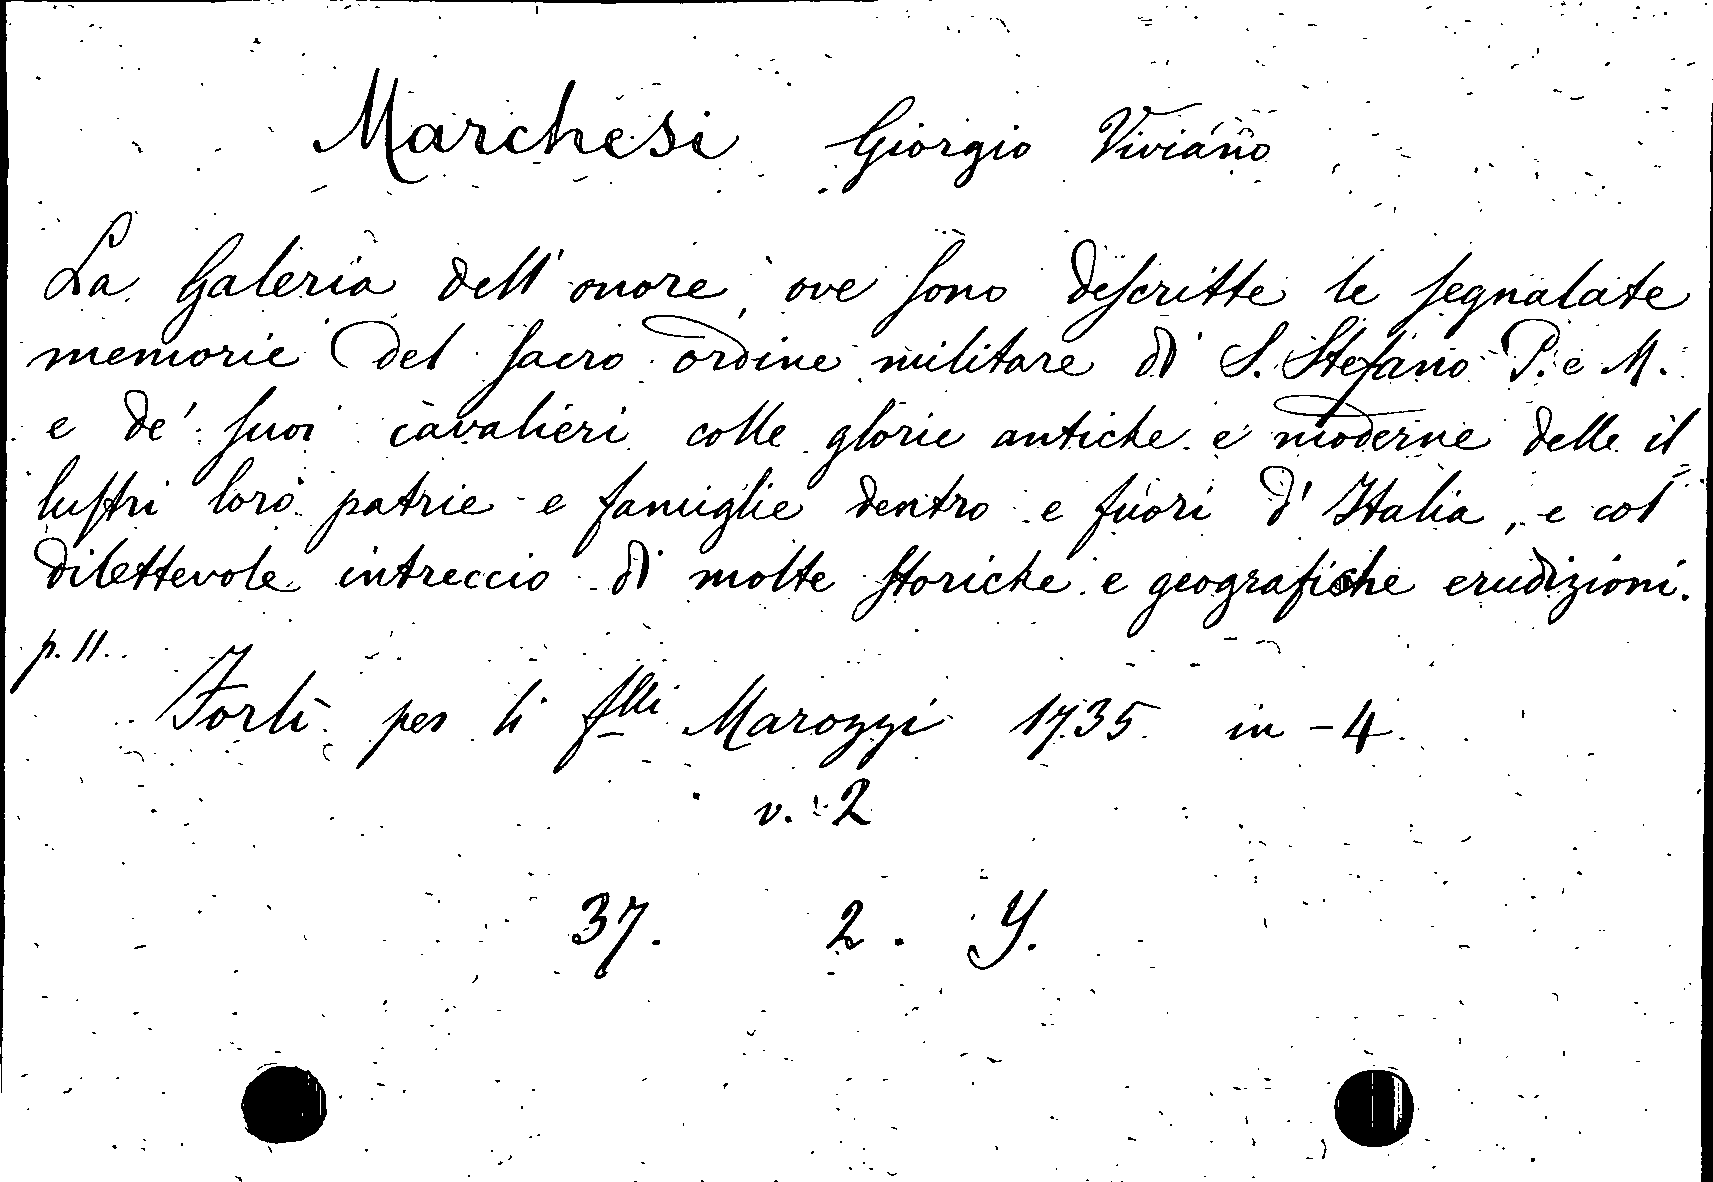 Marchesi Giorgio Viviano
La Galeria dell' onore, ove sono descritte le segnalate
memorie del sacro ordine militare di S. Stefano P. e M.
e de' suoi cavalieri colle glorie antiche e moderne delle il=
lustri loro patrie e famiglie dentro e fuori d' Italia, e col
dilettevole intreccio di molte storiche e geografiche erudizioni.
p. II.
Forlì per li flli Marozzi 1735 in - 4.
v. 2
37. 2. Y.